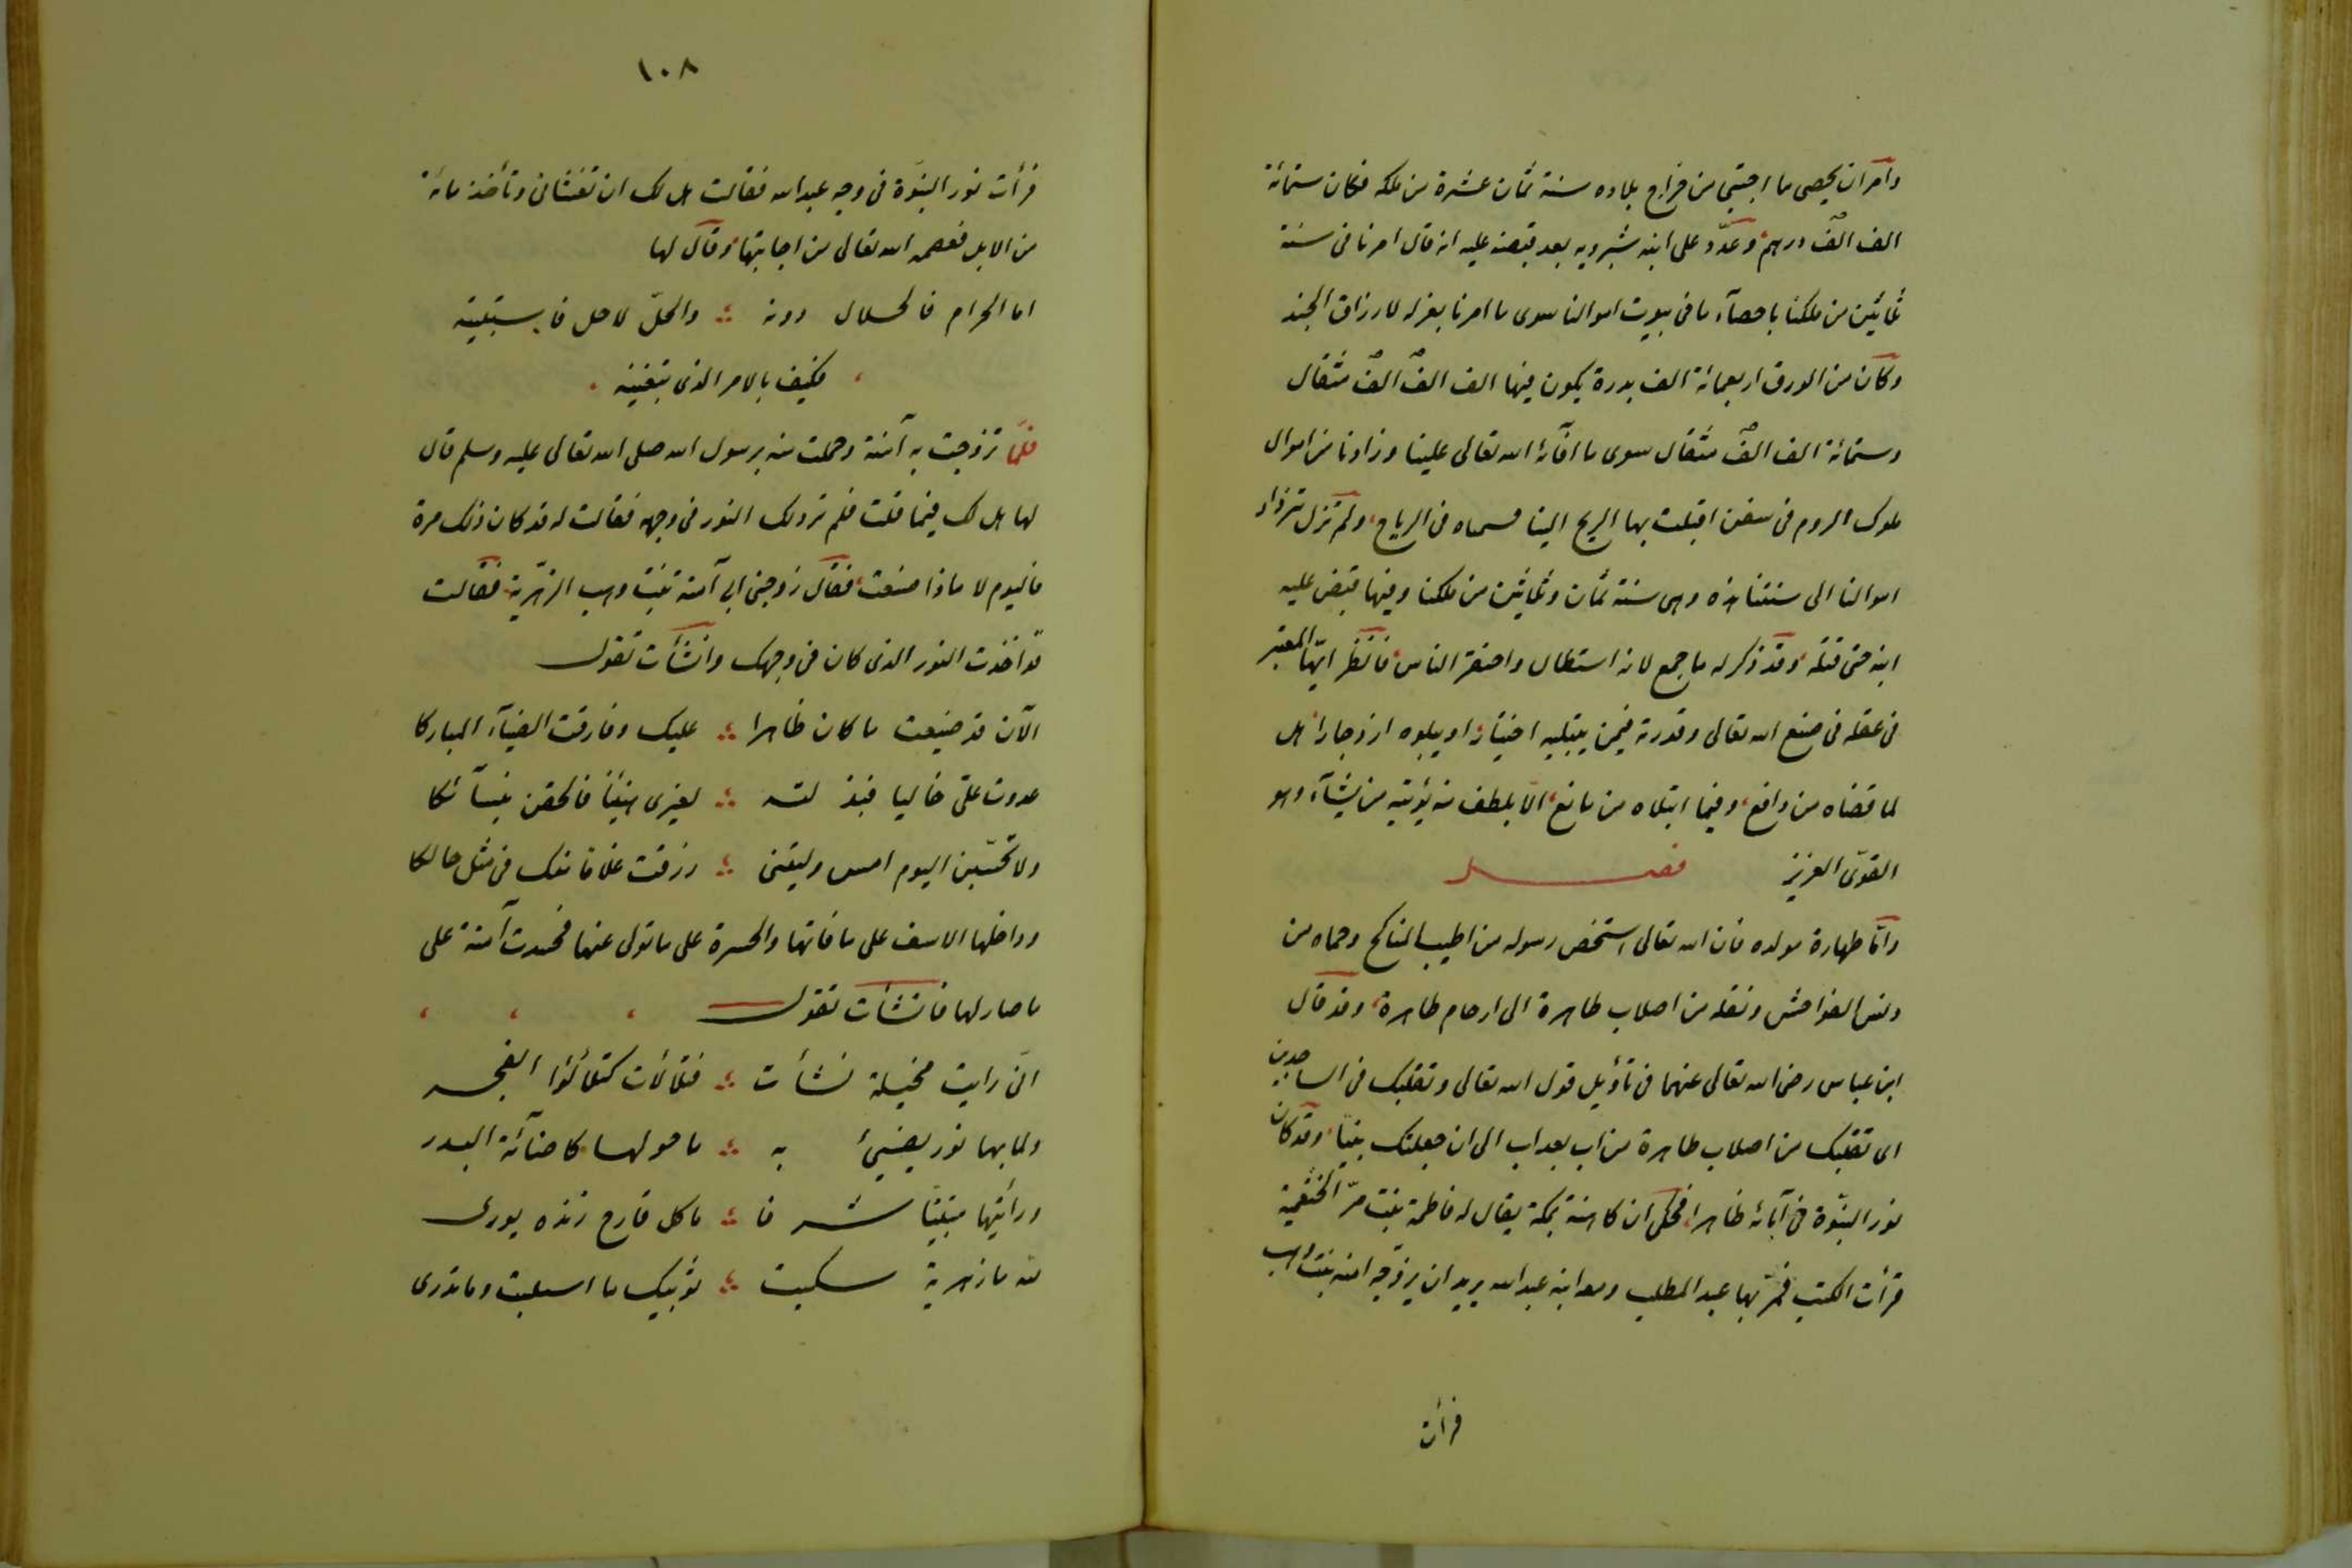 وامر ان يحصى ما اجتبى من خراج بلاده سنة ثمان عشرة من ملكه فكان ستمائة
الف الف درهم وعدّد على ابنه شيرويه بعد قبضه عليه انه قال امرنا فى سنة
ثمانين من ملكنا باحصآء ما فى بيوت اموالنا سوى ما امرنا بعزله لارزاق الجند
وكان من الورق اربعمائة الف بدرة يكون فيها الف الف الف مثقال
وستمائة الف الف مثقال سوى ما افآئه الله تعالى علينا وزادنا من اموال
ملوك الروم فى سفن اقبلت بها الريح الينا فسماه فئ الرياح ولم تزل تزداد
اموالنا الى سنتنا هذه وهى سنة ثمان وثمانين من ملكنا وفيها قبض عليه
ابنه حتى قتله وقد ذكر له ما جمع لانه استطال واحتقر الناس فانظر ايّها المعتبر
فى عقله فى صنع الله تعالى وقدرته فيمن يبتليه اختبارا او يبلوه ازدجارا هل
لما قضاه من دافع وفيما ابتلاه من مانع الّا بلطف منه يؤتيه من يشآء وهو
القوىّ العزيز فصل
وامّا طهارة مولده فان الله تعالى استخص رسوله من اطيب المناكح وحماه من
دنس الفواحش ونقله من اصلاب طاهرة الى ارحام طاهرة وقد قال
ابن عباس رضى الله تعالى عنهما فى تأويل قول الله تعالى وتقلبك فى الساجدين
اى تقلبك من اصلاب طاهرة من اب بعد اب الى ان جعلتك نبيّا وقد كان
نور النبوّة فى آبائه ظاهرا فحكى ان كاهنة بمكة يقال له فاطمة بنت مرّ الخثعمية
قرأت الكتب فمرّ بها عبد المطلب ومعه ابنه عبد الله يريد ان يزوّجه امنه بنت وهب
فرأت
١٠٨
فرأت نور النبوّة فى وجه عبد الله فقالت هل لك ان تغشانى وتأخذ مائة
من الابل فعصمه الله تعالى من اجابتها وقال لها
اما الحرام فالحلال دونه والحلّ لا حل فاستبينه
فكيف بالامر الذى تبغينه
فلمّا تزوجت به آمنة وحملت منه برسول الله صلى الله تعالى عليه وسلم قال
لها هل لك فيما قلت فلم تر ذلك النور فى وجهه فقالت له قد كان ذلك مرة
فاليوم لا ماذا صنعت فقال زوجنى ابى آمنة بنت وهب الزهرية فقالت
قد اخذت النور الذى كان فى وجهك وانشأت تقول
الآن قد ضيعت ما كان ظاهرا عليك وفارقت الضيآء المباركا
غدوت علىّ خاليا فبذلته لغيرى هنيئا فالحقن بنسآئكا
ولا تحسبن اليوم امس وليتنى رزقت غلاما منك فى مثل حالكا
وداخلها الاسف على ما فاتها والحسرة على ما تولى عنها فحسدت آمنة على
ما صار لها فانشأت تقول
انّى رايت مخيلة نشأت فتلألأت كتلألؤ الفجر
ولما بها نور يضيئ به ما حولها كاضآئة البدر
ورأيتها متبيّنا شرفا ما كل قادح زنده يورى
لله ما زهرية سلبت ثوبيك ما استلبت وما تدرى